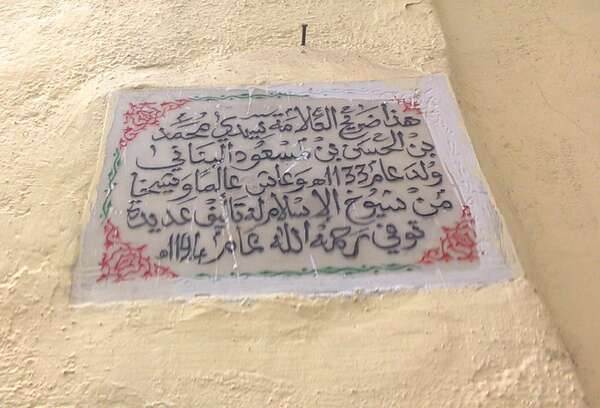 هذا ضريح العلامة سيدي محمد
بن الحسن بن مسعود البناني
ولد عام 1133ه وعاش عالما وشيخا
من شيوخ الإسلام له تآليف عديدة
توفي رحمه الله عام 1194ه